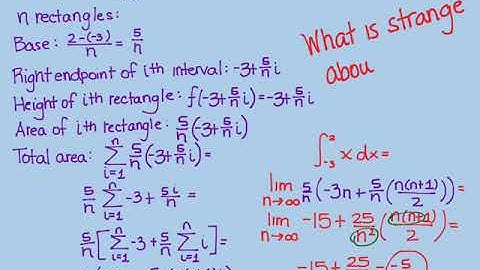 n rectangles:
Base: 2-(-3)/n = 5/n
Right endpoint of ith interval: -3+5/n i
Height of ith rectangle: f(-3+5/n i)=-3+5/n i
Area of ith rectangle: 5/n(-3+5/n i)
Total area: ∑_{i=1}^{n} 5/n(-3+5/n i)=
5/n ∑_{i=1}^{n} -3+5i/n =
5/n[∑_{i=1}^{n} -3+5/n ∑_{i=1}^{n} i]=
What is strange
abou
∫_{-3}^{2} x dx=
lim_{n→∞} 5/n(-3n+5/n(n(n+1)/2))=
lim_{n→∞} -15+25/n²(n(n+1)/2)=
-15+25/2=-5/2